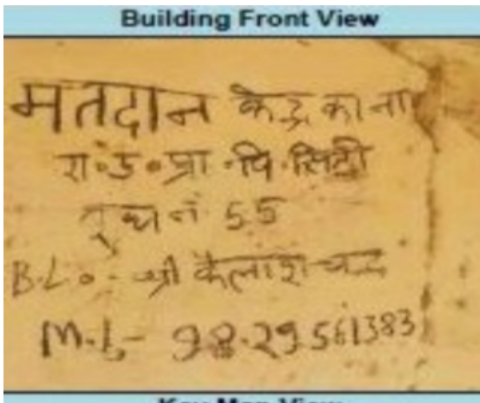 Building Front View
मतदान केन्द्र का ना
रा॰ उ॰ प्रा॰ वि॰ सिटी
बुथ नं 55
B.L.o - श्री कैलाश चन्द
M.L- 98.29561383
Key Map View